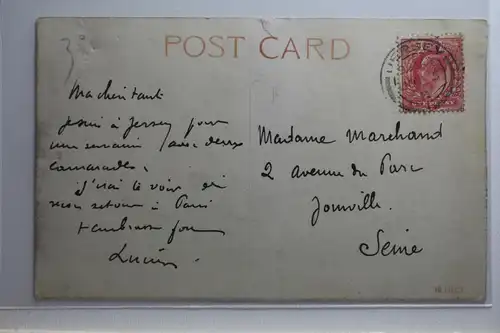 POST CARD
JERSEY
Ma chère tante
Je suis à Jersey pour
une semaine avec deux
camarades.
J'irai te voir dès
mon retour à Paris
t'embrasse
Lucien
Madame Marchand
2 avenue du Parc
Joinville
Seine